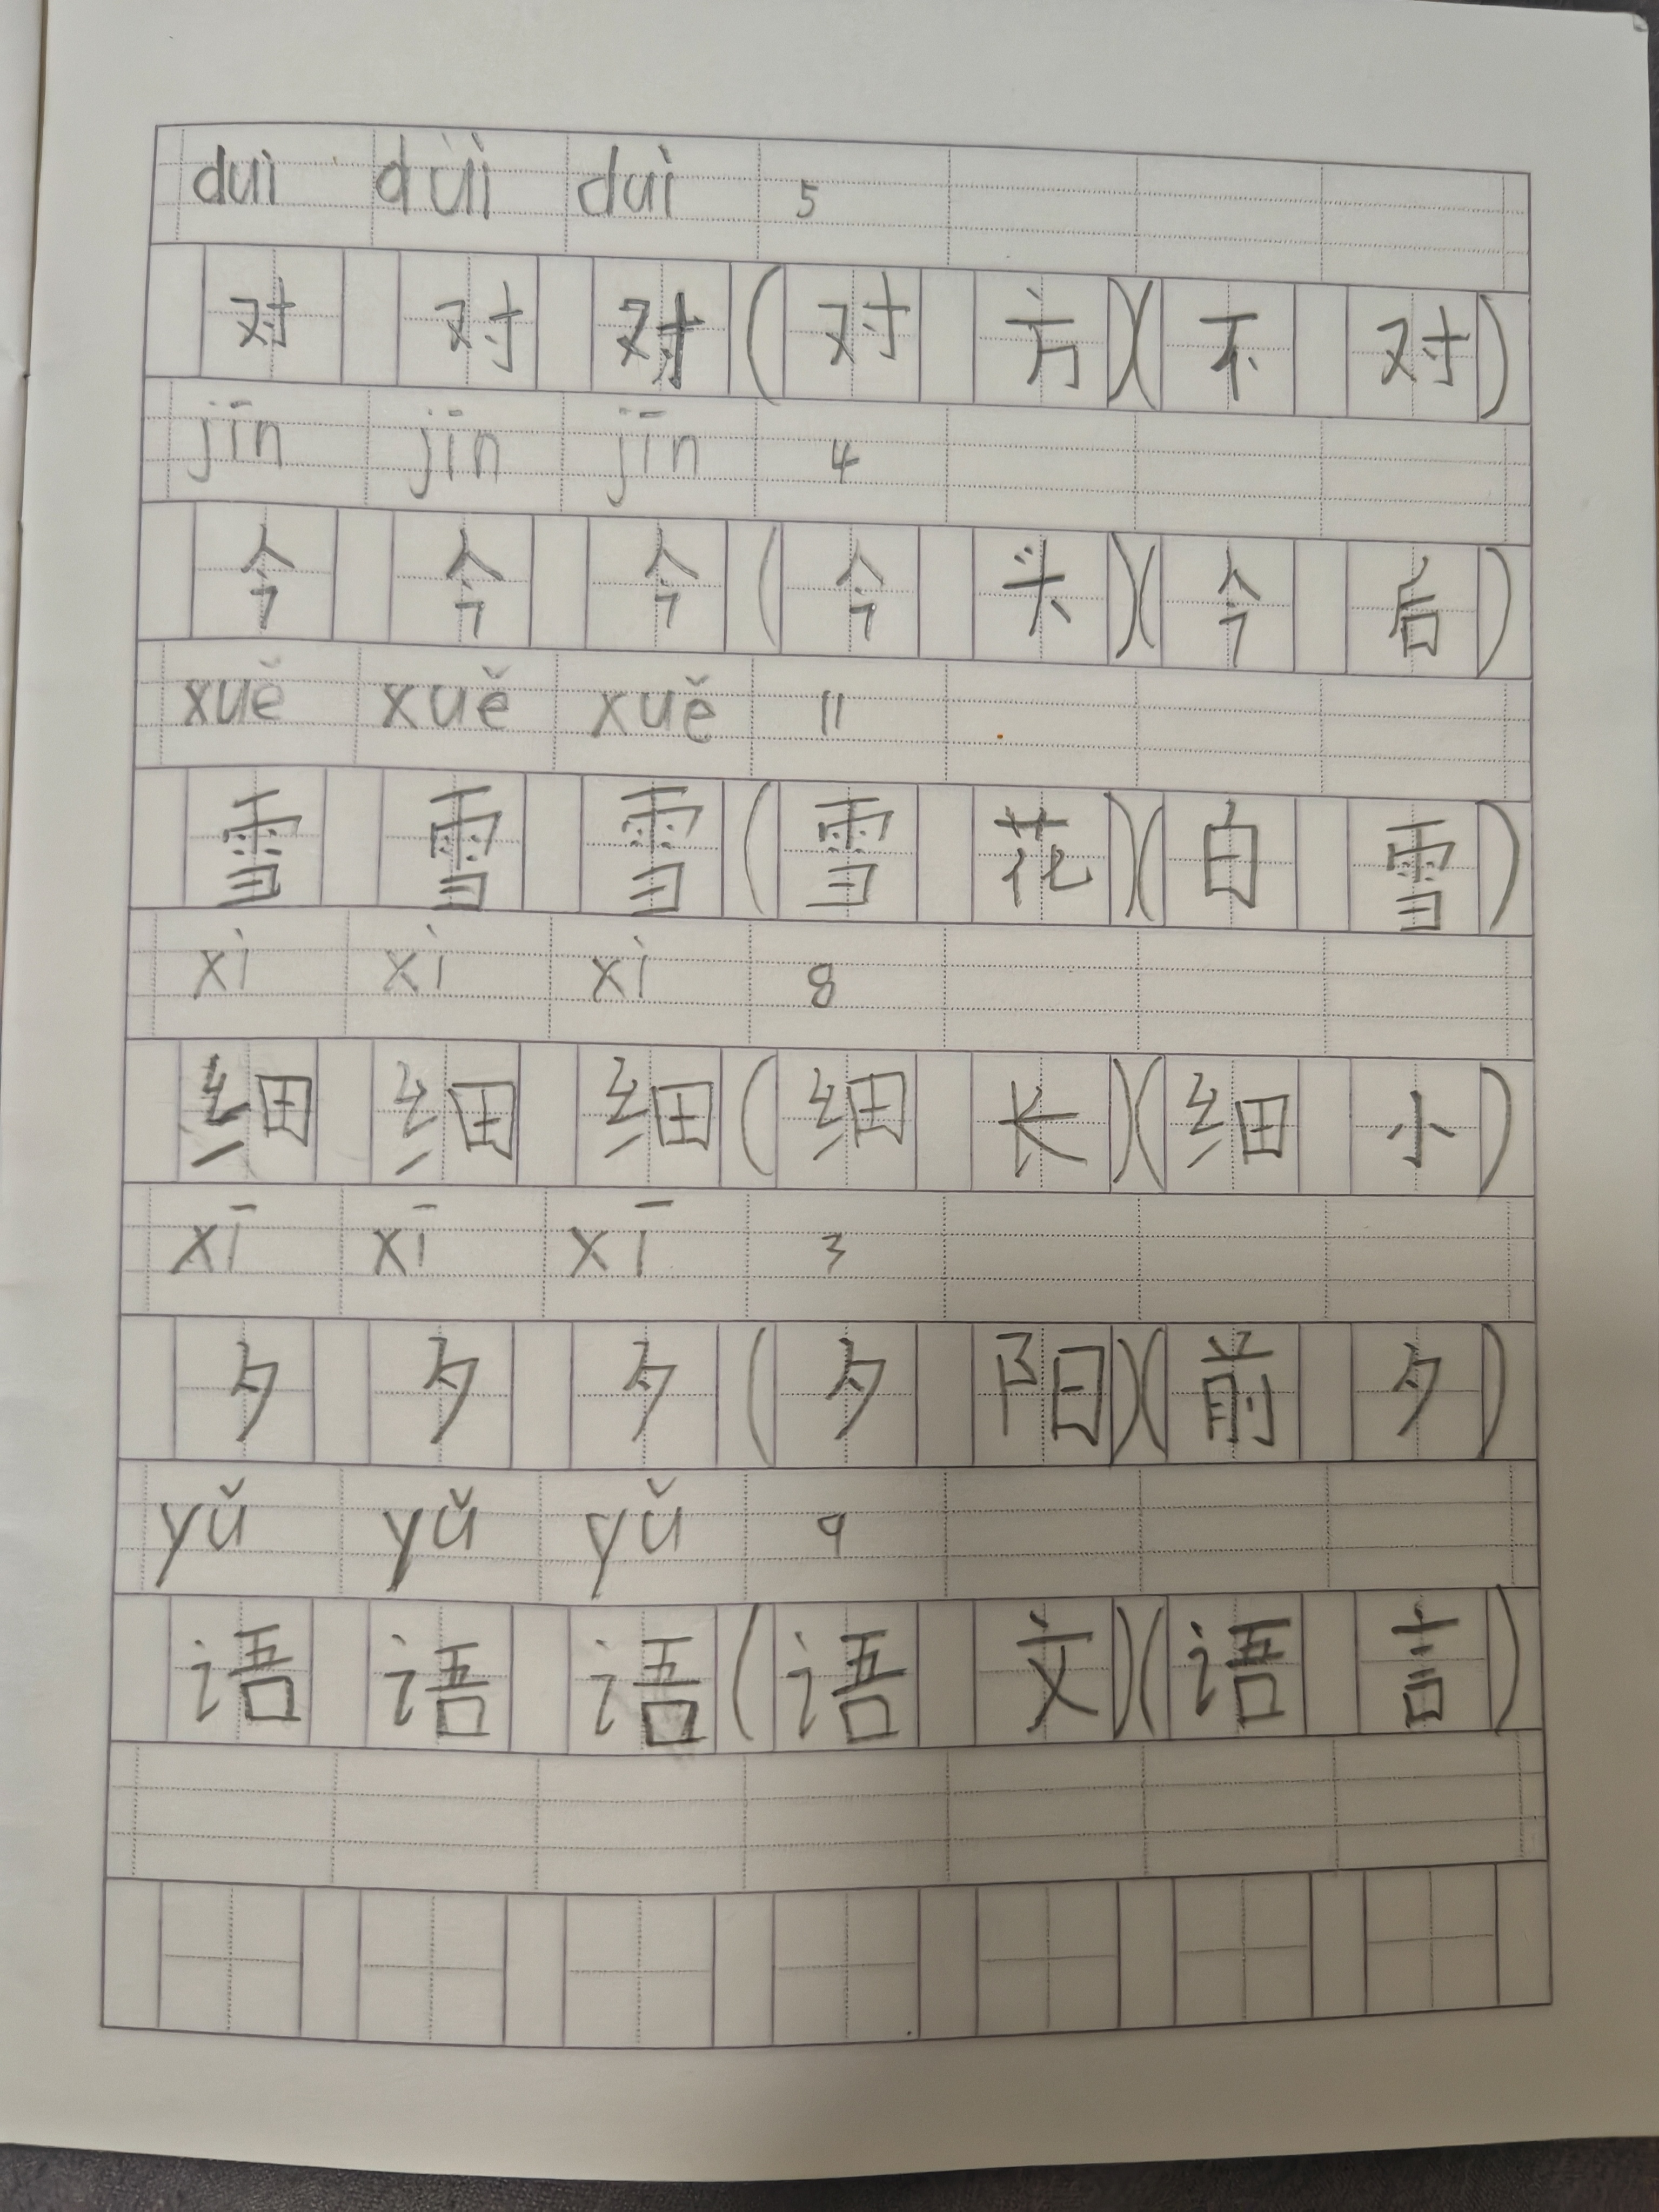 duì duì duì 5
对 对 对 (对 方)(不 对)
jīn jīn jīn 4
今 今 今 (今 头)(今 后)
xuě xuě xuě 11
雪 雪 雪 (雪 花)(白 雪)
xì xì xì 8
细 细 细 (细 长)(细 小)
xī xī xī 3
夕 夕 夕 (夕 阳)(前 夕)
yǔ yǔ yǔ 9
语 语 语 (语 文)(语 言)